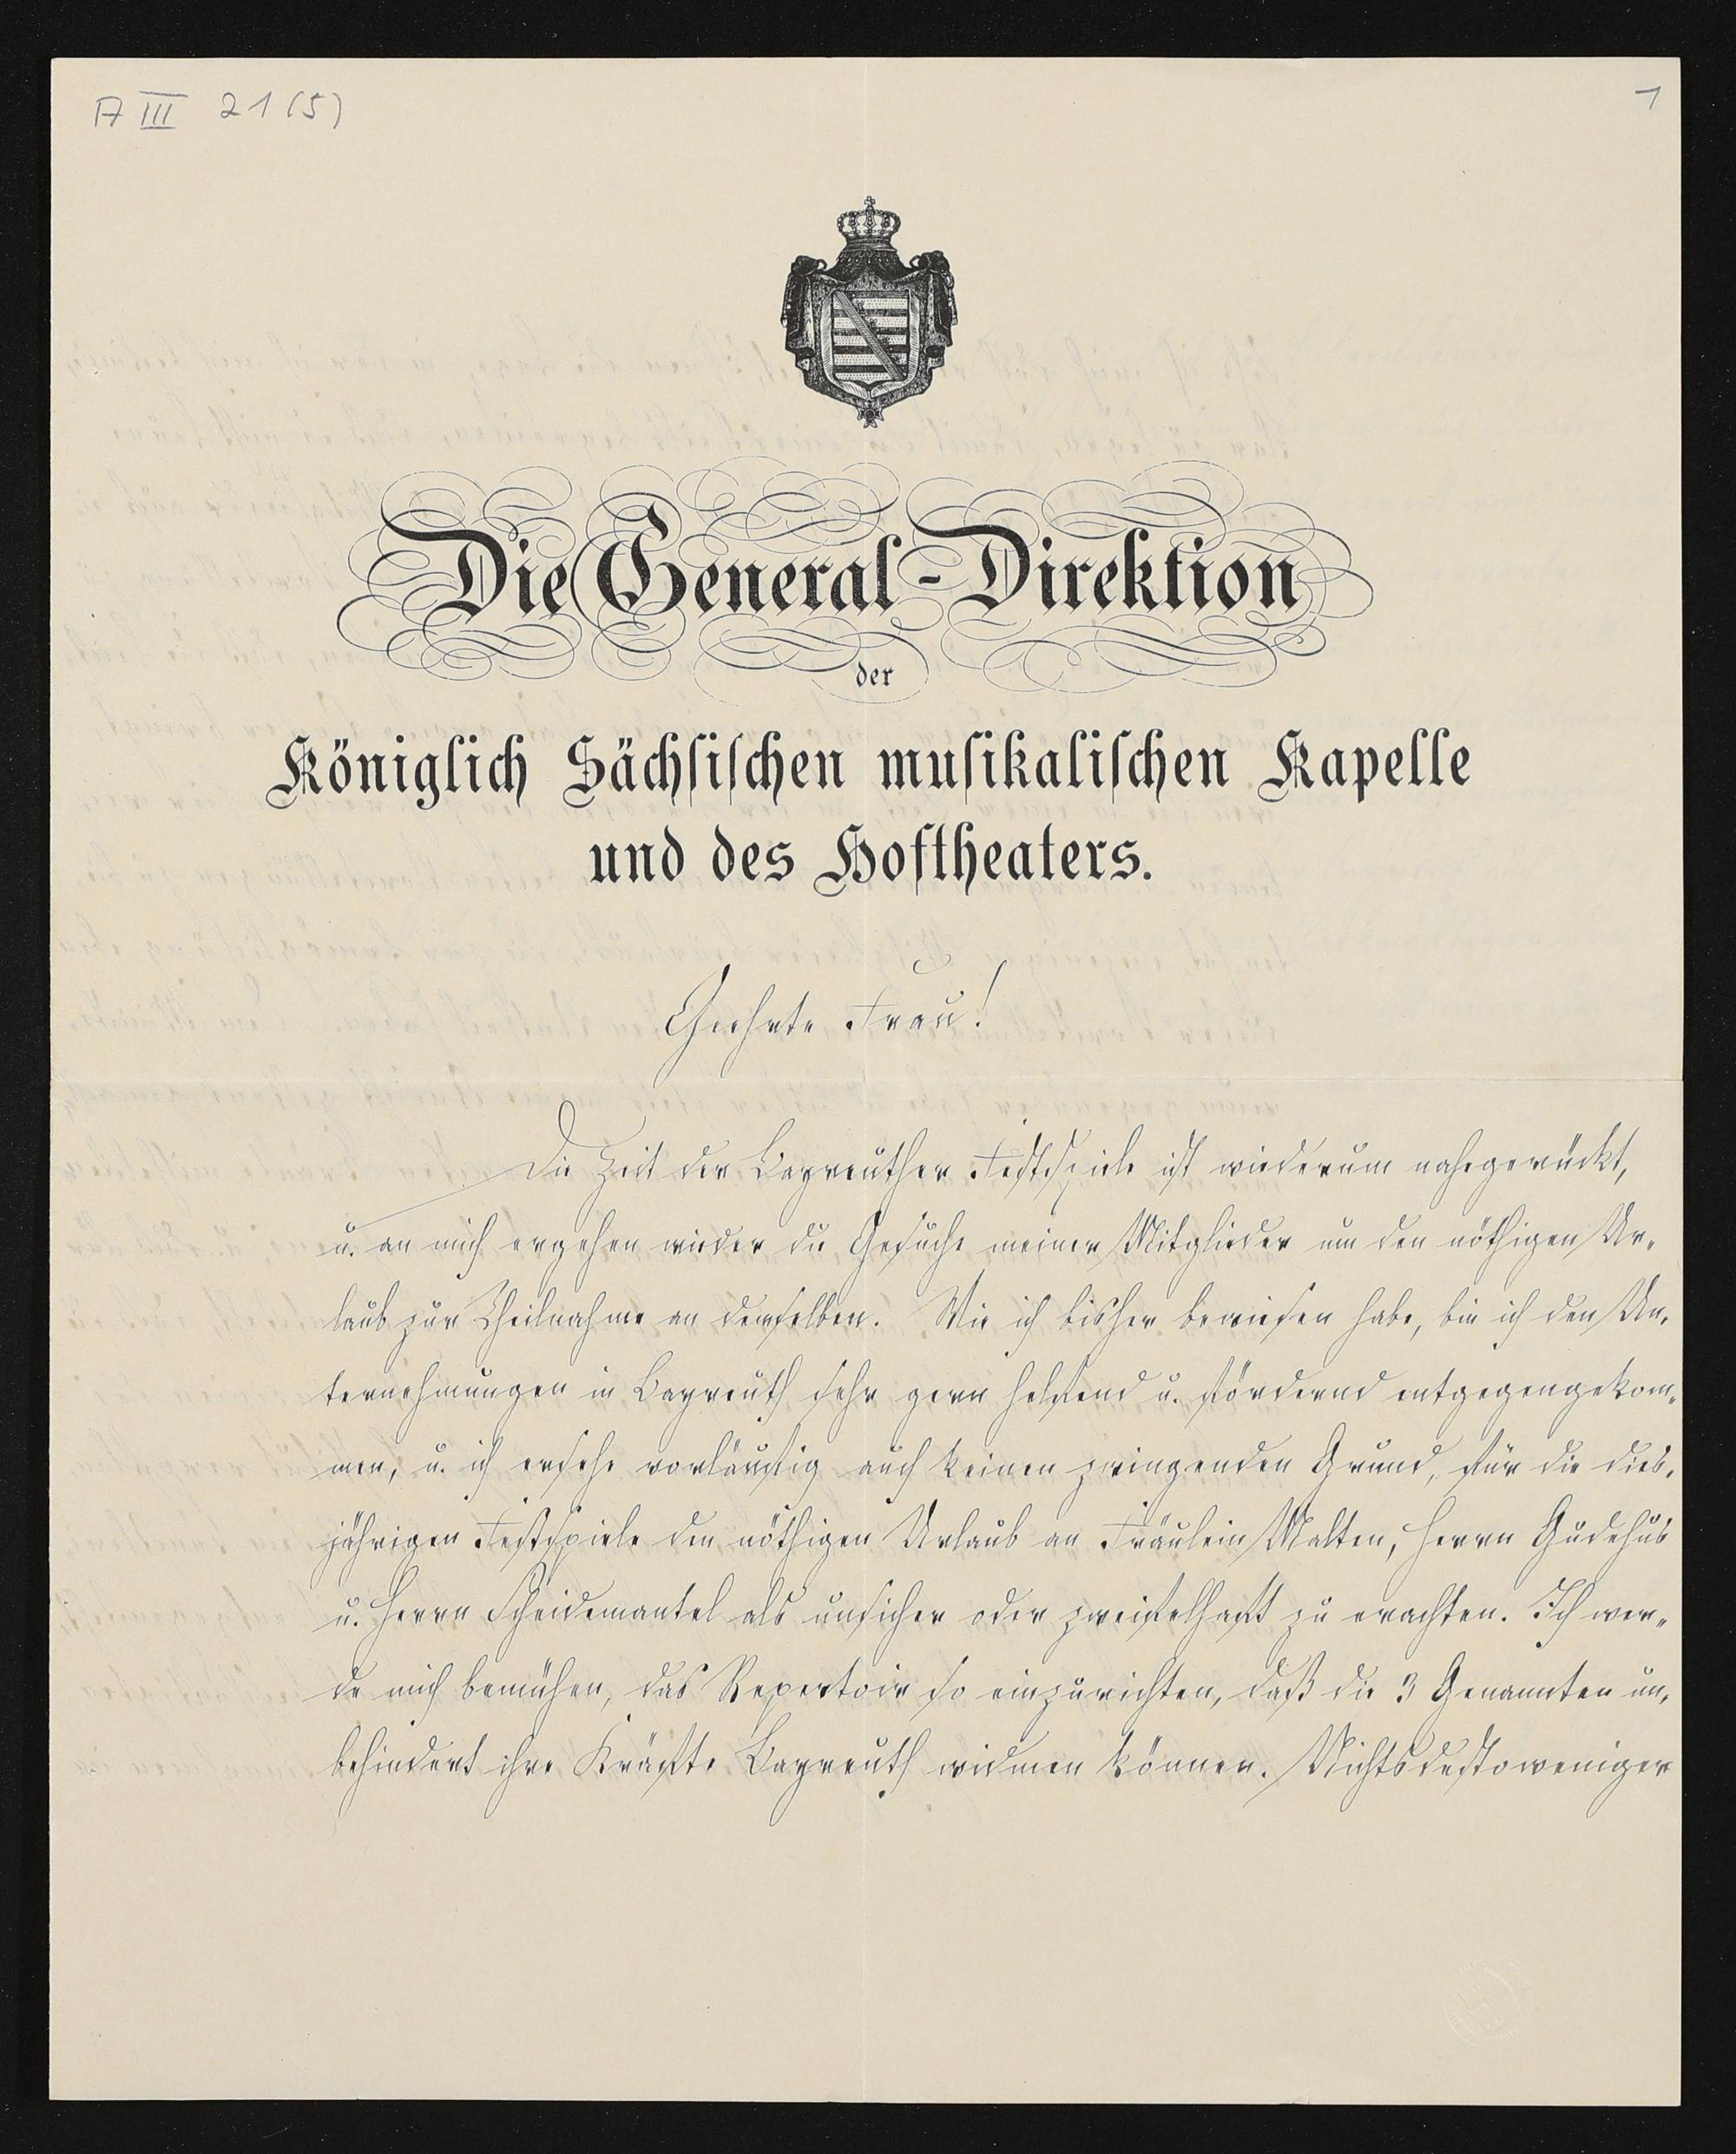 A III 21 (5)
1
Die General-Direktion
der
Königlich Sächsischen musikalischen Kapelle
und des Hoftheaters.
Geehrte Frau!
Die Zeit der Bayreuther Festspiele ist wiederum nahegerückt,
u. an mich ergehen wieder die Gesuche meiner Mitglieder um den nöthigen Ur-
laub zur Theilnahme an denselben. Wie ich bisher bewiesen habe, bin ich den Un-
ternehmungen in Bayreuth sehr gern helfend u. fördernd entgegengekom-
men, u. ich ersehe vorläufig auch keinen zwingenden Grund, für die dies-
jährigen Festspiele den nöthigen Urlaub an Fräulein Malten, Herrn Gudehus
u. Herrn Scheidemantel als unsicher oder zweifelhaft zu erachten. Ich wer-
de mich bemühen, das Repertoir so einzurichten, daß die 3 Genannten un-
behindert ihre Kräfte Bayreuth widmen können. Nichtsdestoweniger